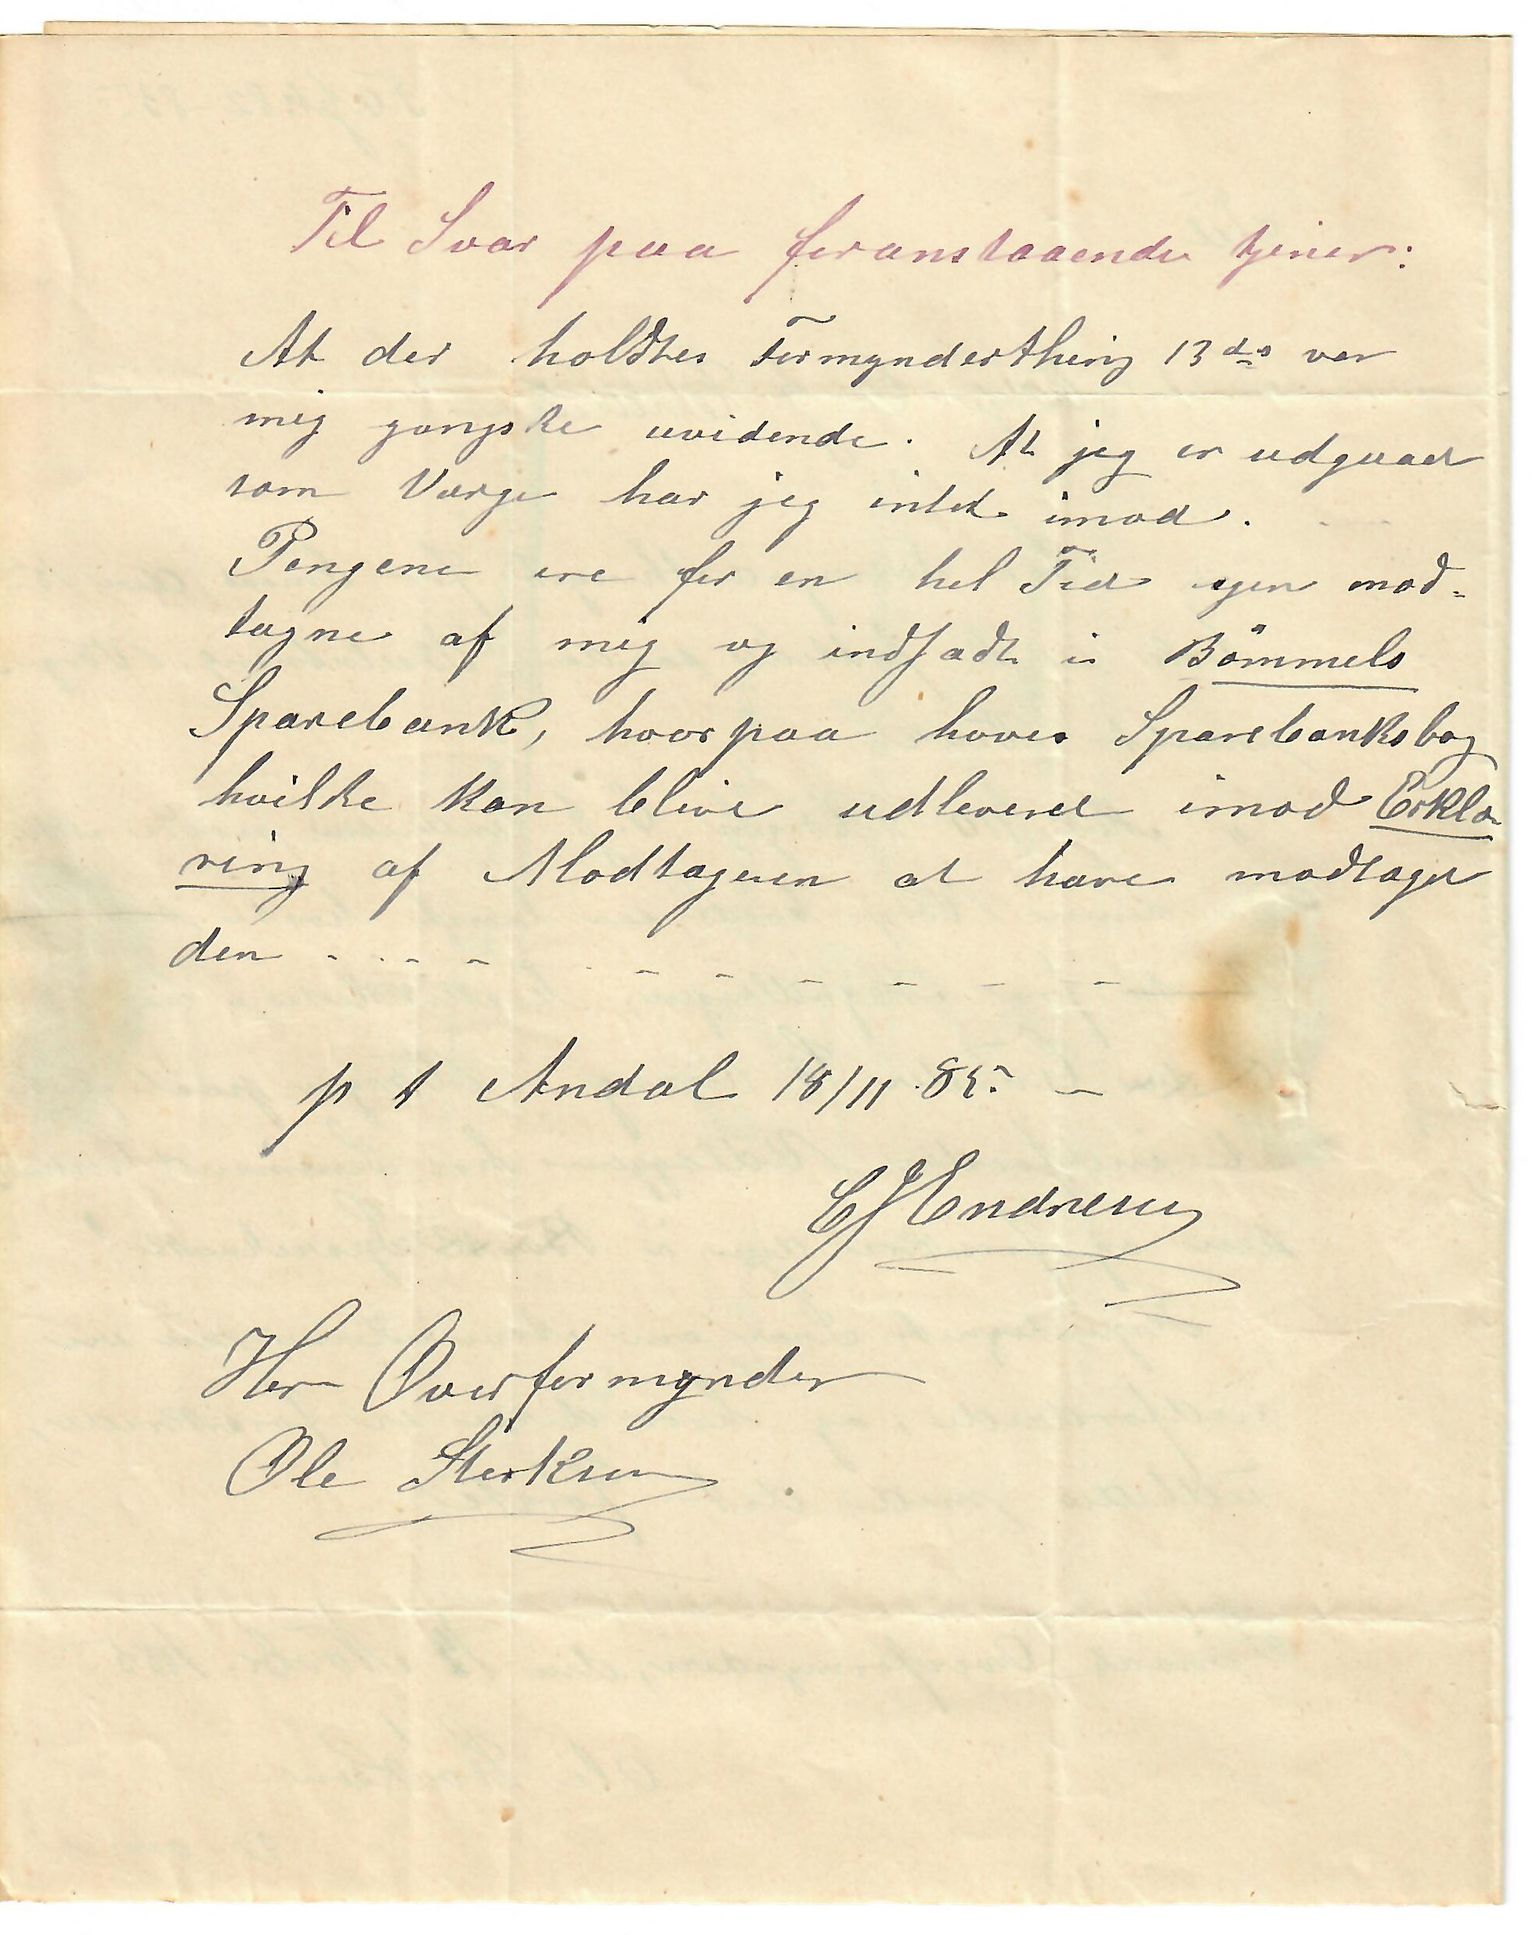 Til Svar paa foranstaaende tjener:
At der holdtes Formynderthing 13 ds var
mig gangske uvidende. At jeg er udgaaet
som Værge har jeg intet imod.
Pengene ere for en hel Tid igen mod-
tagne af mig og indsadt i Bömmels
Sparebank, hvorpaa haves Sparebanksbog
hvilke kan blive udleveret imod Erklæ-
ring af Modtageren at have modtaget
den - - - - - - - - - - -
p t Andal 18/11 85. -
CJ Endresen
Herr Overformynder
Ole Sterksen